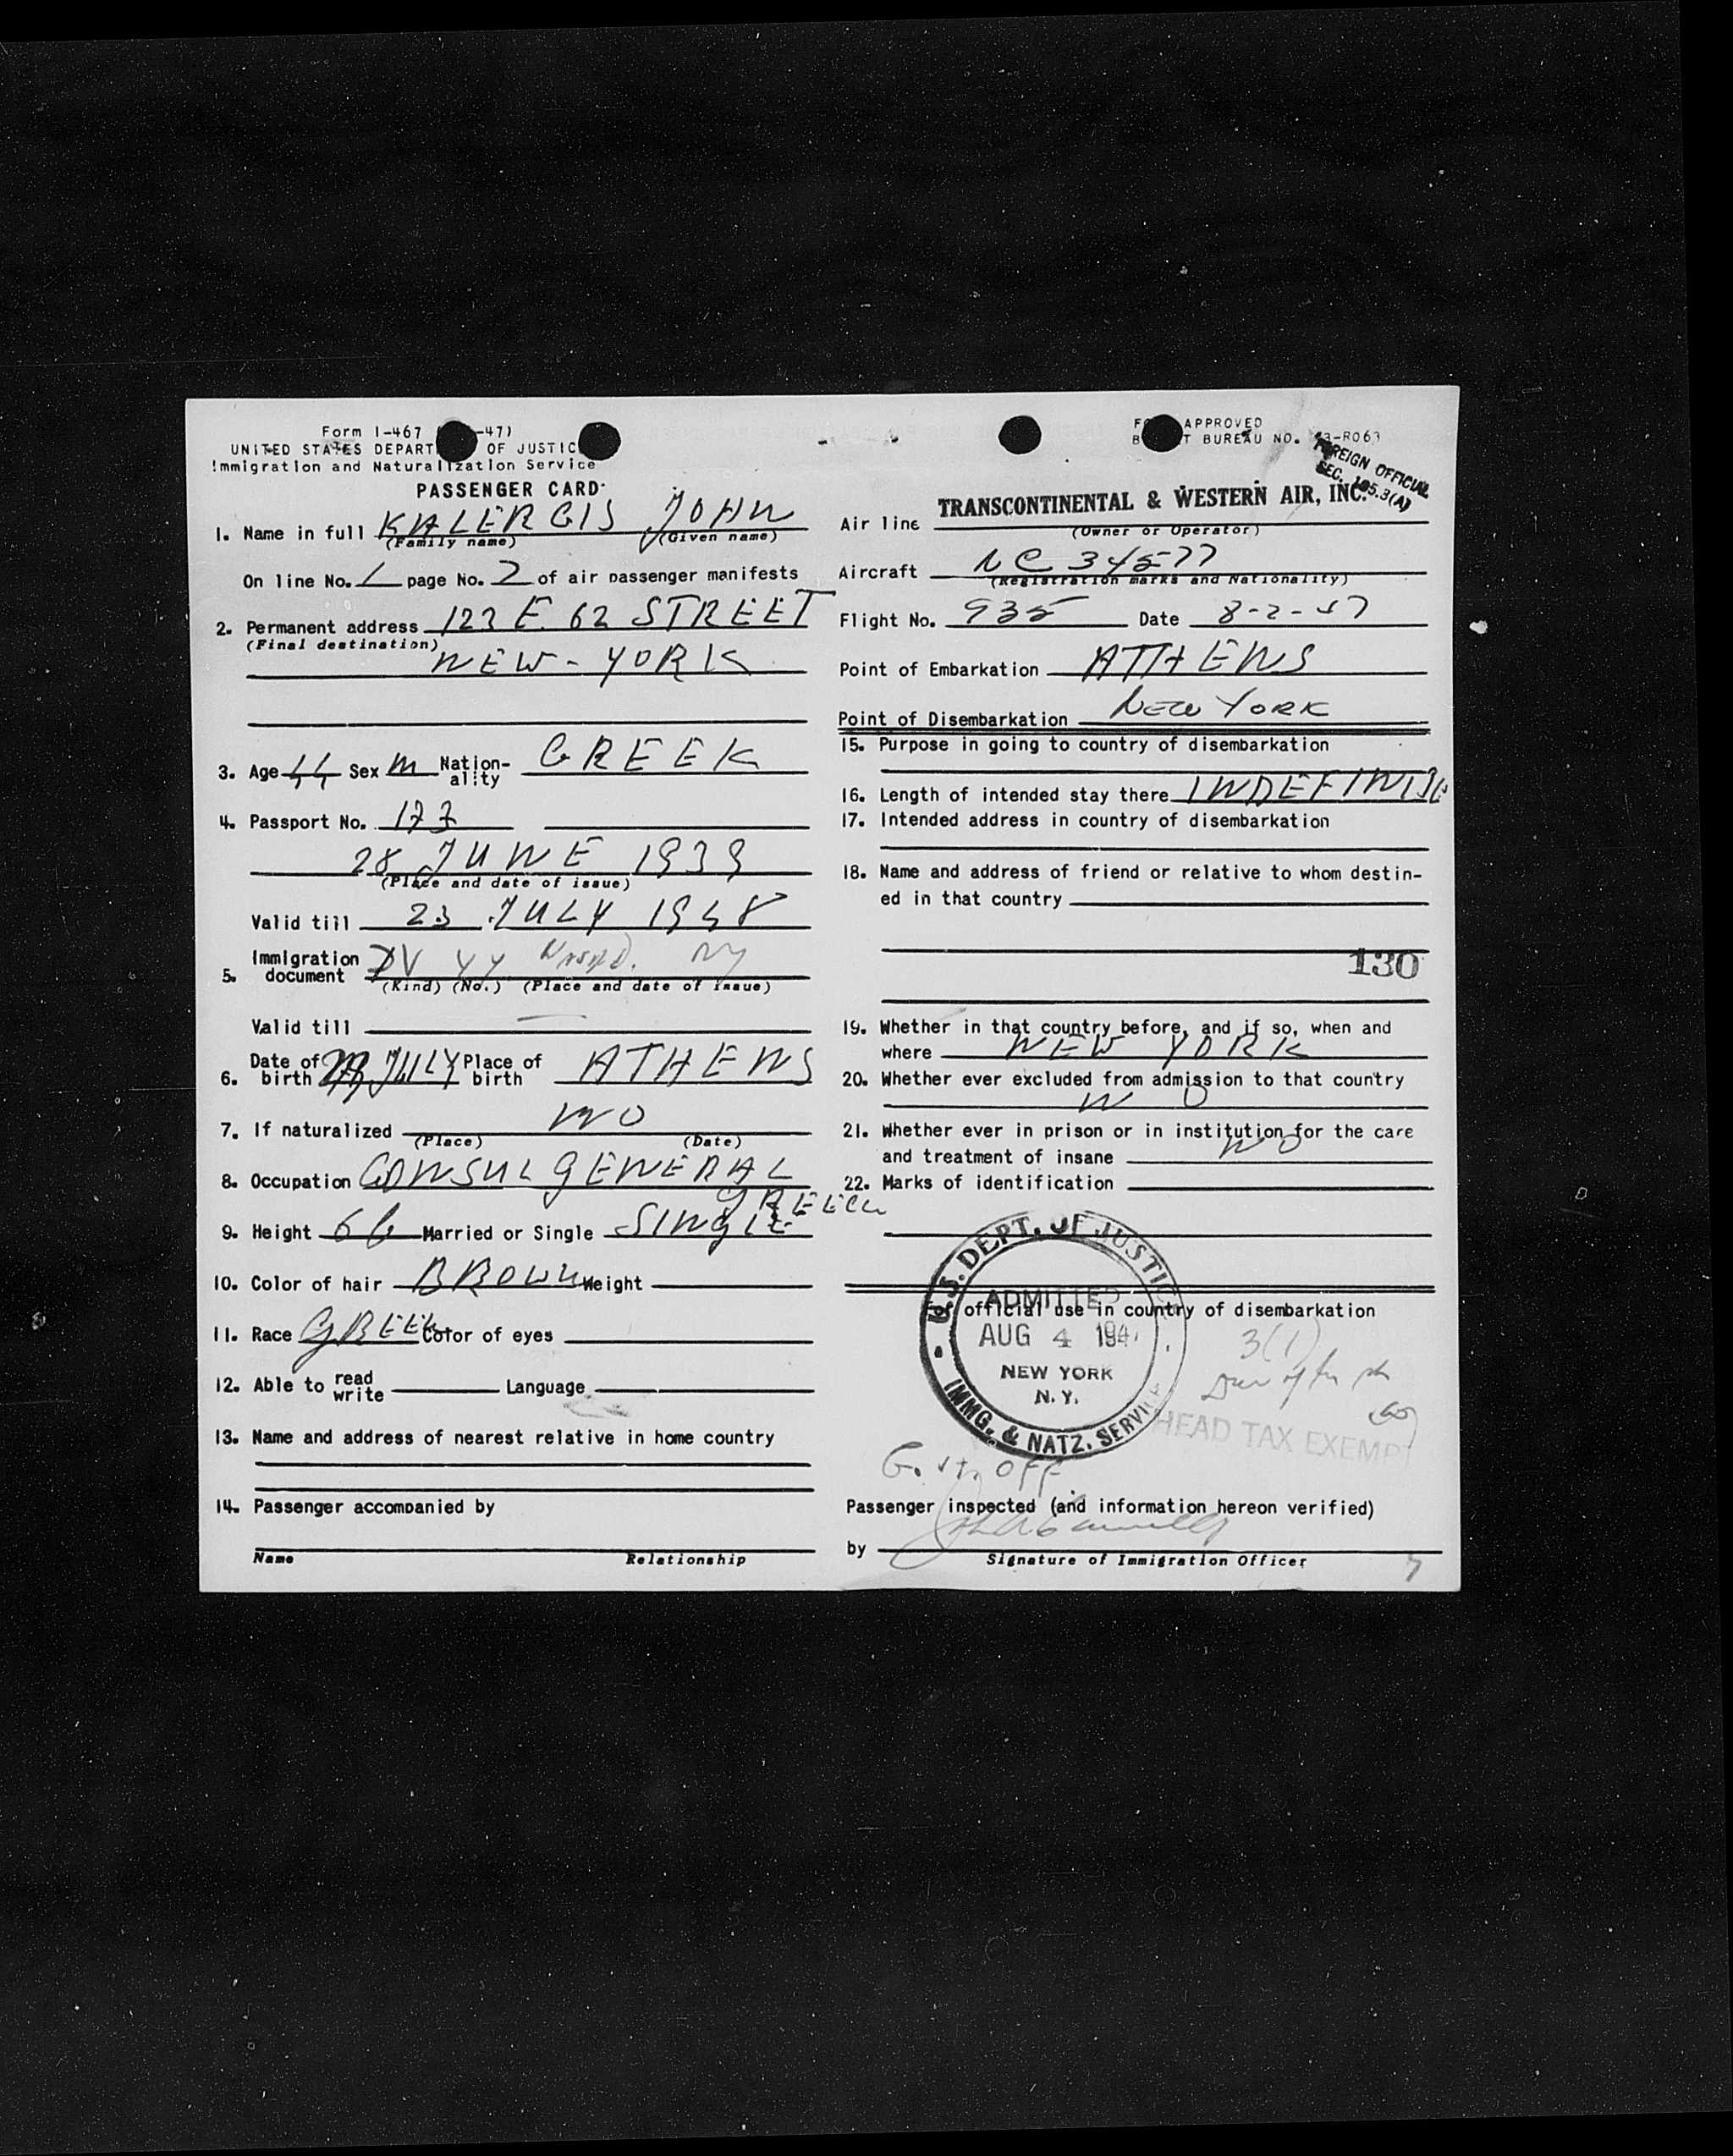 Form I-467 -47)
UNITED STATES DEPART OF JUSTIC
Immigration and Naturalization Service
PASSENGER CARD
1. Name in full KALERGIS JOHN
(Family name) (Given name)
On line No. page No. 2 of air passenger manifests
2. Permanent address 123 E. 62 STREET
(Final destination)
NEW-YORK
3. Age 44 Sex M Nation-ality GREEK
4. Passport No.
28 JUNE 1939
(Place and date of issue)
Valid till 23 JULY 1948
5. Immigration document DV
(Kind) (No.) (Place and date of issue)
Valid till
6. Date of birth JULY Place of birth ATHENS
7. If naturalized NO
(Place) (Date)
8. Occupation CONSUL GENERAL
GREECE
9. Height 6 Married or Single SINGLE
10. Color of hair BROWN Weight
11. Race GREEK Color of eyes
12. Able to read write Language
13. Name and address of nearest relative in home country
14. Passenger accompanied by
Name Relationship
FO APPROVED
B T BUREAU NO. 3-R063
FOREIGN OFFICIAL
SEC. 105.3(A)
Air line TRANSCONTINENTAL & WESTERN AIR, INC.
(Owner or Operator)
Aircraft NC 34577
(Registration marks and Nationality)
Flight No. 935 Date 8-2-47
Point of Embarkation ATHENS
Point of Disembarkation NEW YORK
15. Purpose in going to country of disembarkation
16. Length of intended stay there INDEFINITE
17. Intended address in country of disembarkation
18. Name and address of friend or relative to whom destin-
ed in that country
130
19. Whether in that country before, and if so, when and
where NEW YORK
20. Whether ever excluded from admission to that country
NO
21. Whether ever in prison or in institution for the care
and treatment of insane NO
22. Marks of identification
official use in country of disembarkation
U.S. DEPT. OF JUSTICE
ADMITTED
AUG 4 194
NEW YORK
N.Y.
IMMG. & NATZ. SERVICE
3(1)
HEAD TAX EXEMPT
Govt. OFF
Passenger inspected (and information hereon verified)
by
Signature of Immigration Officer